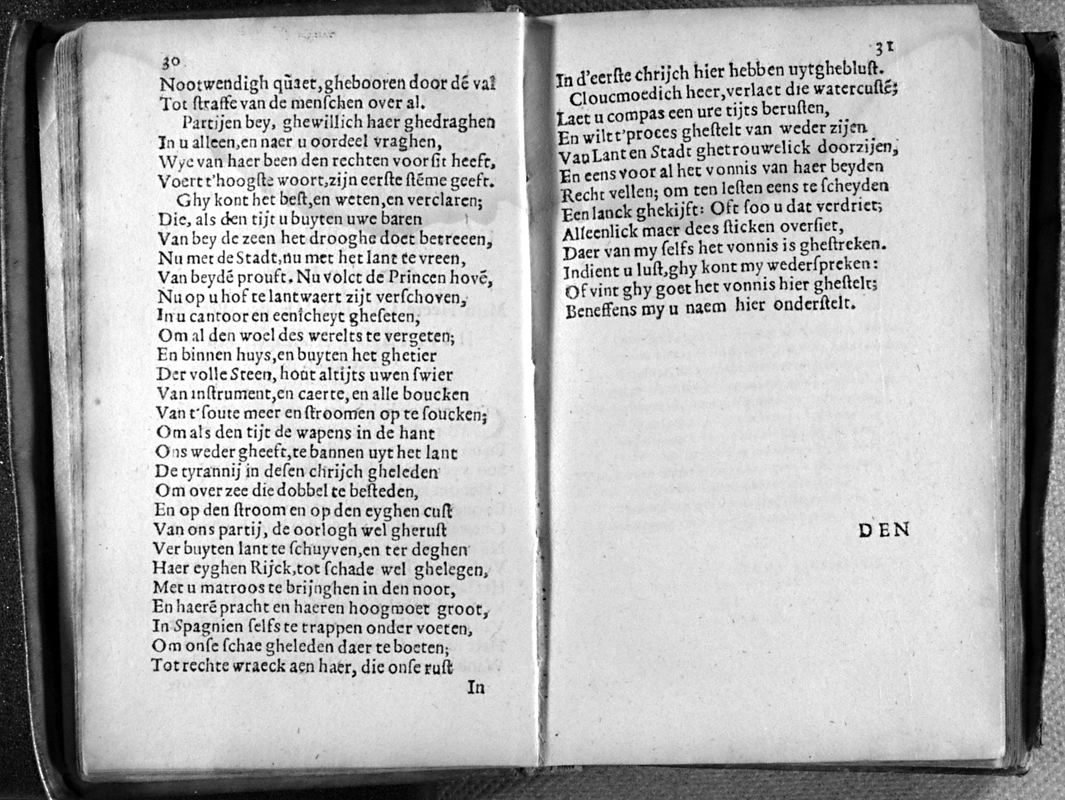 30
Nootwendigh qũaet, ghebooren door dẽ val
Tot ſtraffe van de menſchen over al.
Partijen bey, ghewillich haer ghedraghen
In u alleen, en naer u oordeel vraghen,
Wye van haer been den rechten voorſit heeft,
Voert t'hoogſte woort, zijn eerſte ſtẽme geeft.
Ghy kont het beſt, en weten, en verclaren;
Die, als den tijt u buyten uwe baren
Van bey de zeen het drooghe doet betreeen,
Nu met de Stadt, nu met het lant te vreen,
Van beydẽ prouft. Nu volct de Princen hovẽ,
Nu op u hof te lantwaert zijt verſchoven,
In u cantoor en eenicheyt gheſeten,
Om al den woel des werelts te vergeten;
En binnen huys, en buyten het ghetier
Der volle Steen, hout altijts uwen ſwier
Van inſtrument, en caerte, en alle boucken
Van t'ſoute meer en ſtroomen op te ſoucken;
Om als den tijt de wapens in de hant
Ons weder gheeft, te bannen uyt het lant
De tyrannij in deſen chrijch gheleden
Om over zee die dobbel te beſteden,
En op den ſtroom en op den eyghen cuſt
Van ons partij, de oorlogh wel gheruſt
Ver buyten lant te ſchuyven, en ter deghen
Haer eyghen Rijck, tot ſchade wel ghelegen,
Met u matroos te brijnghen in den noot,
En haerẽ pracht en haeren hoogmoet groot,
In Spagnien ſelfs te trappen onder voeten,
Om onſe ſchae gheleden daer te boeten;
Tot rechte wraeck aen haer, die onſe ruſt
In
31
In d'eerſte chrijch hier hebben uytghebluſt.
Cloucmoedich heer, verlaet die watercuſtẽ;
Laet u compas een ure tijts beruſten,
En wilt t'proces gheſtelt van weder zijen
Van Lant en Stadt ghetrouwelick doorzijen,
En eens voor al het vonnis van haer beyden
Recht vellen; om ten leſten eens te ſcheyden
Een lanck ghekijft: Oft ſoo u dat verdriet,
Alleenlick maer dees ſticken overſiet,
Daer van my ſelfs het vonnis is gheſtreken.
Indient u luſt, ghy kont my wederſpreken:
Of vint ghy goet het vonnis hier gheſtelt;
Beneffens my u naem hier onderſtelt.
DEN